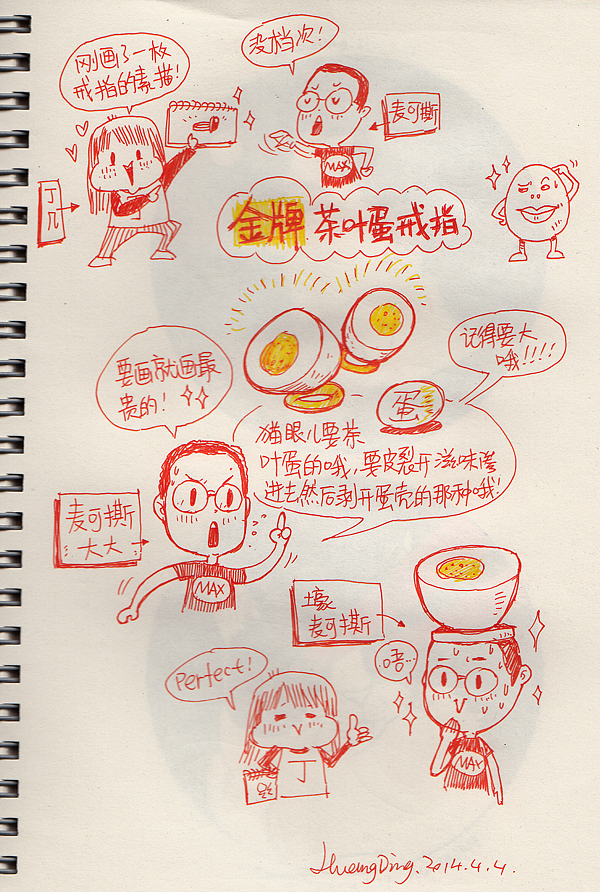 刚画了一枚
戒指的素描!
没档次!
麦可撕
MAX
丁
几
金牌 茶叶蛋戒指
要画就画最
贵的!
记得要大
哦!!!!
蛋
猫眼儿要茶
叶蛋的哦,要皮裂开滋味渗
进去然后剥开蛋壳的那种哦!
麦可撕
大大
MAX
壕
麦可撕
唔…
Perfect!
丁
MAX
HuangDing. 2014.4.4.